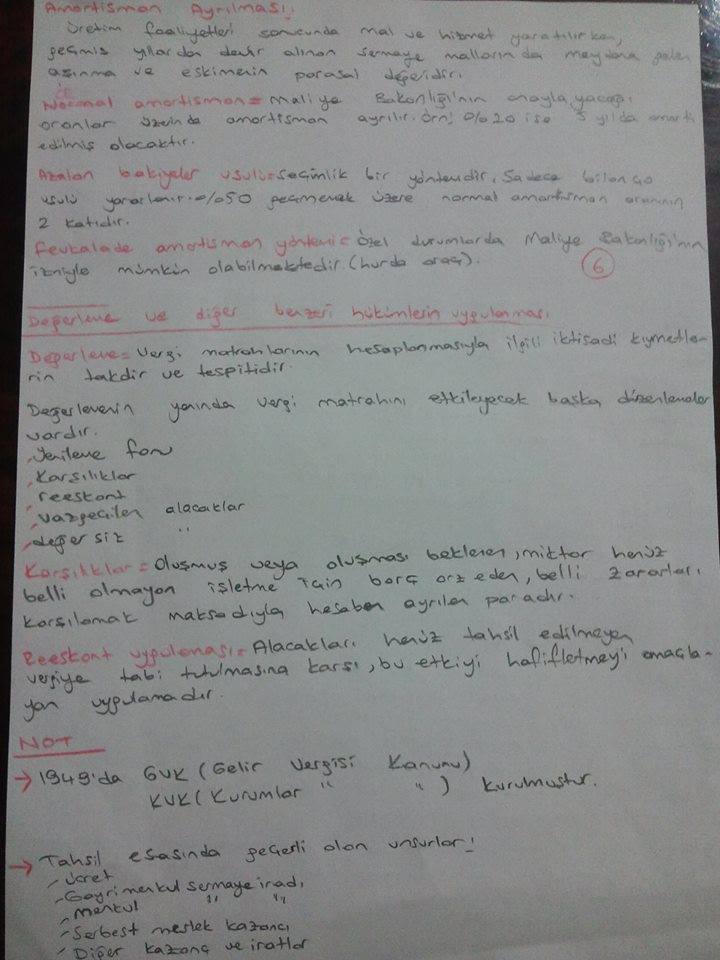 Amortisman Ayrılması:
Üretim faaliyetleri sonucunda mal ve hizmet yaratılırken,
geçmiş yıllardan devir alınan sermaye mallarında meydana gelen
aşınma ve eskimenin parasal değeridir.
Normal amortisman = Maliye Bakanlığı'nın onaylayacağı
oranlar üzerinde amortisman ayrılır. Örn: %20 ise 5 yılda amorti
edilmiş olacaktır.
Azalan bakiyeler usulü = Seçimlik bir yöntemdir. Sadece bilanço
usulü yararlanır. %50 geçmemek üzere normal amortisman oranının
2 katıdır.
Fevkalade amortisman yöntemi = Özel durumlarda Maliye Bakanlığı'nın
izniyle mümkün olabilmektedir. (hurda araç).
6
Değerleme ve diğer benzeri hükümlerin uygulanması
Değerleme = Vergi matrahlarının hesaplanmasıyla ilgili iktisadi kıymetle-
rin takdir ve tespitidir.
Değerlemenin yanında vergi matrahını etkileyecek başka düzenlemeler
vardır.
Yenileme fonu
Karşılıklar
reeskont
vazgeçilen alacaklar
değersiz "
Karşılıklar = Oluşmuş veya oluşması beklenen, miktar henüz
belli olmayan işletme için borç arz eden, belli zararları
karşılamak maksadıyla hesaben ayrılan paradır.
Reeskont uygulaması = Alacakları henüz tahsil edilmeyen
vergiye tabi tutulmasına karşı, bu etkiyi hafifletmeyi amaçla-
yan uygulamadır.
NOT
→ 1949'da GVK (Gelir Vergisi Kanunu)
KVK (Kurumlar " ") kurulmuştur.
→ Tahsil esasında geçerli olan unsurlar:
Ücret
Gayrimenkul sermaye iradı
Menkul " "
Serbest meslek kazancı
Diğer kazanç ve iratlar